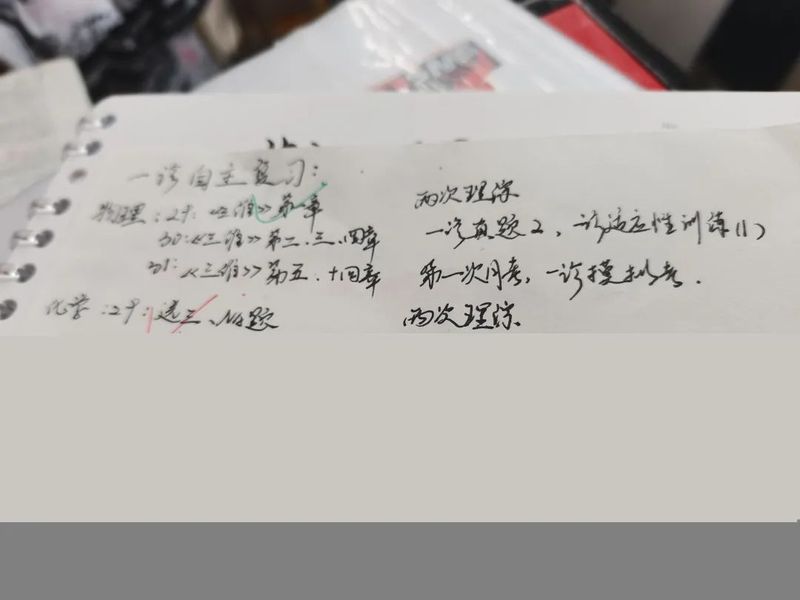 一诊自主复习：
物理：29：《三维》第一章
两次理综
30：《三维》第二、三、四章
一诊真题2、一诊适应性训练(1)
31：《三维》第五、十四章
第一次月考，一诊模拟考．
化学：29：选三、NA题
两次理综